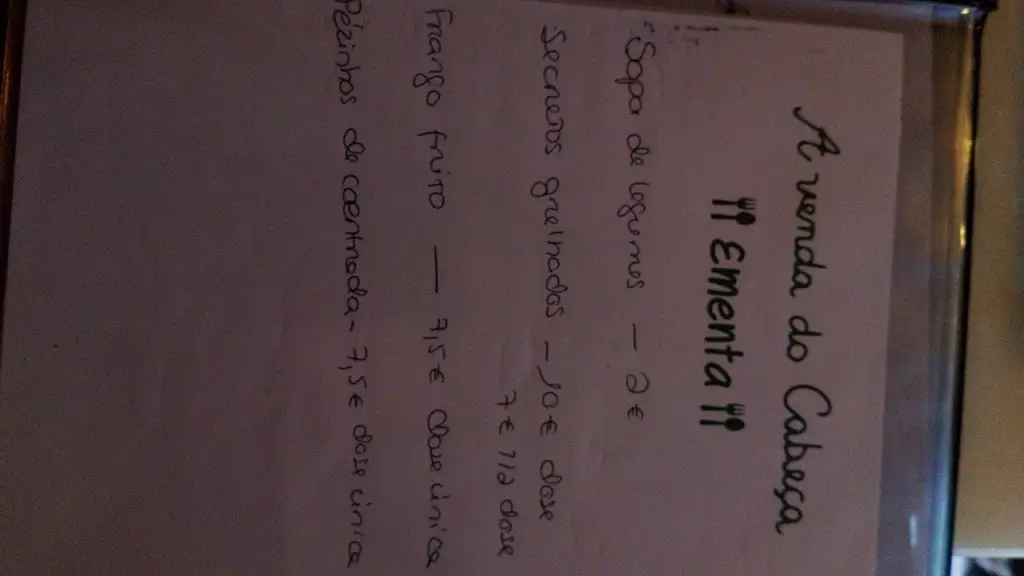 A venda do Cabeça
Ementa
Sopa de legumes - 2€
Secretos grelhados - 10€ dose
7€ 1/2 dose
Frango frito — 7,5€ dose única
Pézinhos de coentrada - 7,5€ dose única